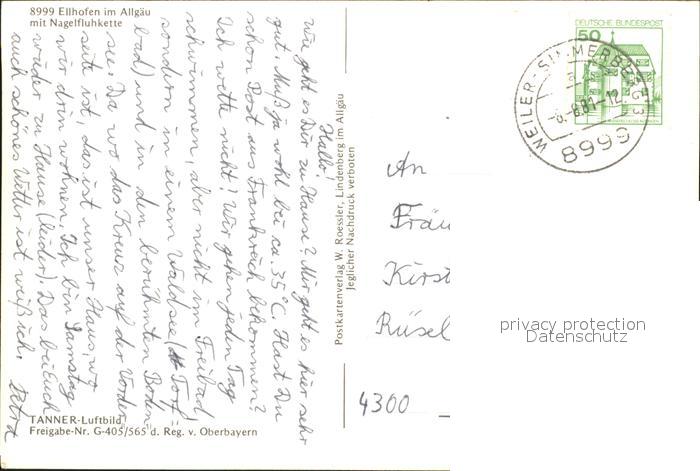 8999 Ellhofen im Allgäu
mit Nagelfluhkette
Hallo!
Wie geht es Dir zu Hause? Mir geht es hier sehr
gut. Muß ja wohl bei ca. 35°C. Hast Du
schon Post aus Frankreich bekommen?
Ich wette nicht! Wir gehen jeden Tag
schwimmen, aber nicht im Freibad,
sondern in einem Waldsee (Torf-
bad) und in den berühmten Boden-
see. Da wo das Kreuz auf der Vorder-
seite ist, das ist unser Haus, wo
wir drin wohnen. Ich bin Samstag
wieder zu Hause (leider). Das bei Euch
auch schönes Wetter ist weiß ich.
Petra
TANNER-Luftbild
Freigabe-Nr. G-405/565 d. Reg. v. Oberbayern
Postkartenverlag W. Roessler, Lindenberg im Allgäu
Jeglicher Nachdruck verboten
DEUTSCHE BUNDESPOST
50
WEILER-SIMMERBERG 3
-6.-8.81-12
8999
An
Fräu
Kirst
Rüsel
4300
privacy protection
Datenschutz